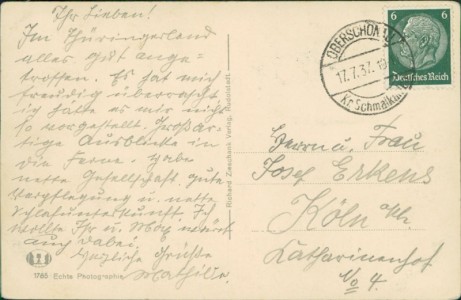 Ihr Lieben!
Im Thüringerland
alles gut ange-
troffen. Es hat mich
freudig überrascht
ich hätte es mir nicht
so vorgestellt. Großar-
tige Ausblicke in
die Ferne. Habe
nette Gesellschaft, gute
Verpflegung u. nette
Schlafunterkunft. Ich
wollte Ihr u. Mox wäret
auch dabei.
Herzliche Grüße
Mathilde
1765 Echte Photographie
Richard Zieschank Verlag, Ruhla
OBERSCHÖNAU
17.7.37.
Kr. Schmalkalden
6 6
Deutsches Reich
Herrn u. Frau
Josef Erkens
Köln a/Rh.
Katharinenhof
No 4.